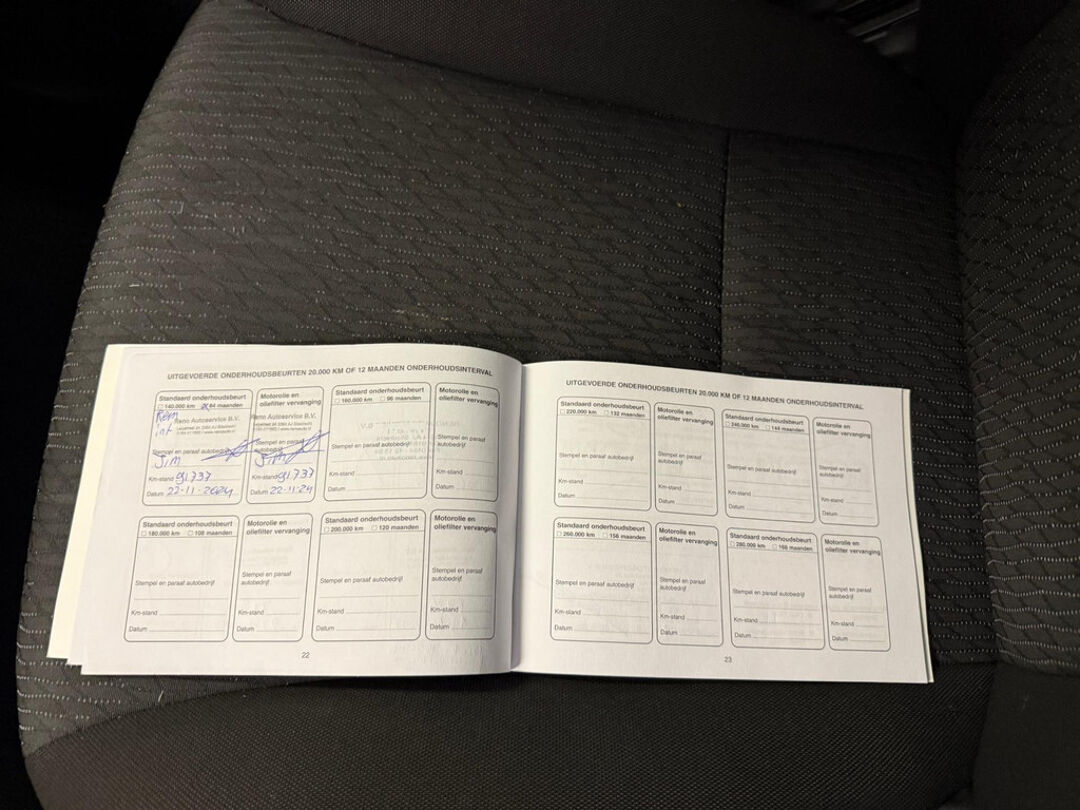 UITGEVOERDE ONDERHOUDSBEURTEN 20.000 KM OF 12 MAANDEN ONDERHOUDSINTERVAL
Standaard onderhoudsbeurt
140.000 km 84 maanden
Rem
Reno Autoservice B.V.
Stempel en paraaf autobedrijf
Jim
Km-stand 91.737
Datum 22-11-2024
Motorolie en
oliefilter vervanging
Reno Autoservice B.V.
Stempel en paraaf
autobedrijf
Jim
Km-stand 91.737
Datum 22-11-24
Standaard onderhoudsbeurt
160.000 km 96 maanden
Stempel en paraaf autobedrijf
Km-stand
Datum
Motorolie en
oliefilter vervanging
Stempel en paraaf
autobedrijf
Km-stand
Datum
Standaard onderhoudsbeurt
180.000 km 108 maanden
Stempel en paraaf autobedrijf
Km-stand
Datum
Motorolie en
oliefilter vervanging
Stempel en paraaf
autobedrijf
Km-stand
Datum
Standaard onderhoudsbeurt
200.000 km 120 maanden
Stempel en paraaf autobedrijf
Km-stand
Datum
Motorolie en
oliefilter vervanging
Stempel en paraaf
autobedrijf
Km-stand
Datum
22
UITGEVOERDE ONDERHOUDSBEURTEN 20.000 KM OF 12 MAANDEN ONDERHOUDSINTERVAL
Standaard onderhoudsbeurt
220.000 km 132 maanden
Stempel en paraaf autobedrijf
Km-stand
Datum
Motorolie en
oliefilter vervanging
Stempel en paraaf
autobedrijf
Km-stand
Datum
Standaard onderhoudsbeurt
240.000 km 144 maanden
Stempel en paraaf autobedrijf
Km-stand
Datum
Motorolie en
oliefilter vervanging
Stempel en paraaf
autobedrijf
Km-stand
Datum
Standaard onderhoudsbeurt
260.000 km 156 maanden
Stempel en paraaf autobedrijf
Km-stand
Datum
Motorolie en
oliefilter vervanging
Stempel en paraaf
autobedrijf
Km-stand
Datum
Standaard onderhoudsbeurt
280.000 km 168 maanden
Stempel en paraaf autobedrijf
Km-stand
Datum
Motorolie en
oliefilter vervanging
Stempel en paraaf
autobedrijf
Km-stand
Datum
23